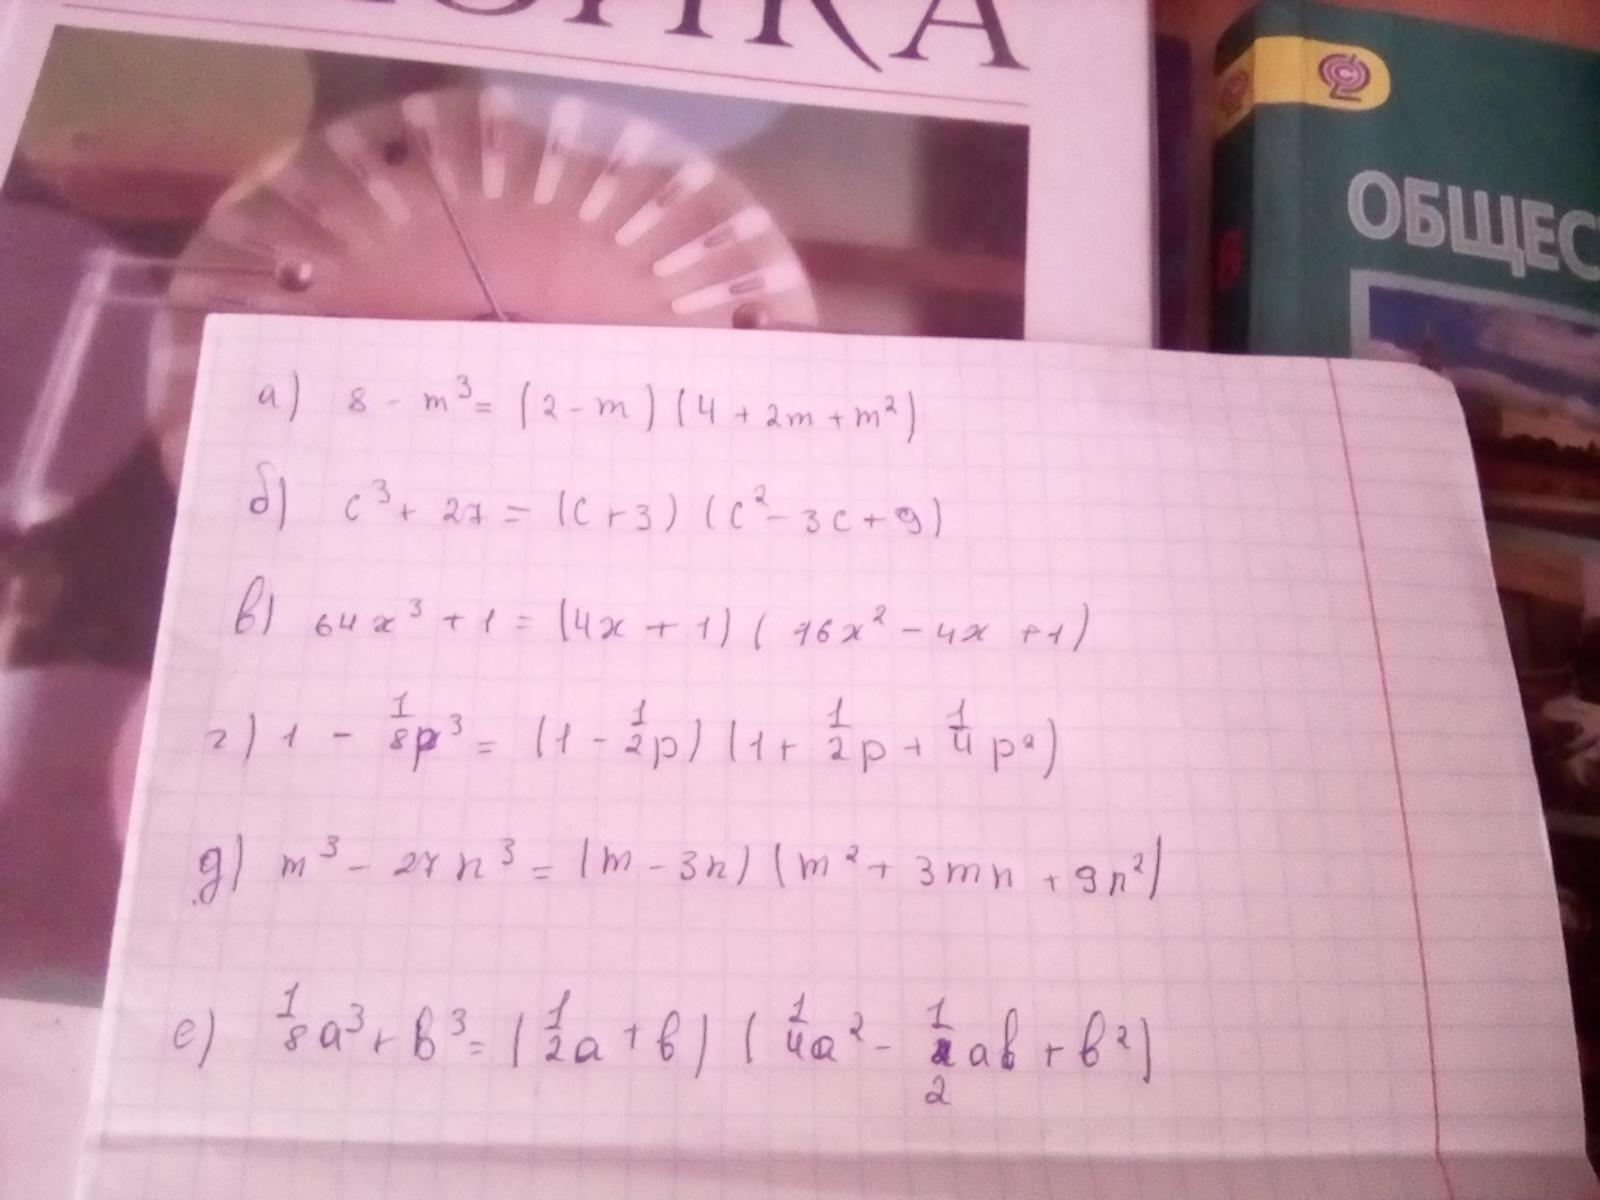 ОБЩЕС
а) 8 - m³ = (2 - m) (4 + 2m + m²)
б) c³ + 27 = (c + 3) (c² - 3c + 9)
в) 64x³ + 1 = (4x + 1) (16x² - 4x + 1)
г) 1 - 1/8p³ = (1 - 1/2p) (1 + 1/2p + 1/4p²)
д) m³ - 27n³ = (m - 3n) (m² + 3mn + 9n²)
е) 1/8a³ + b³ = (1/2a + b) (1/4a² - 1/2ab + b²)